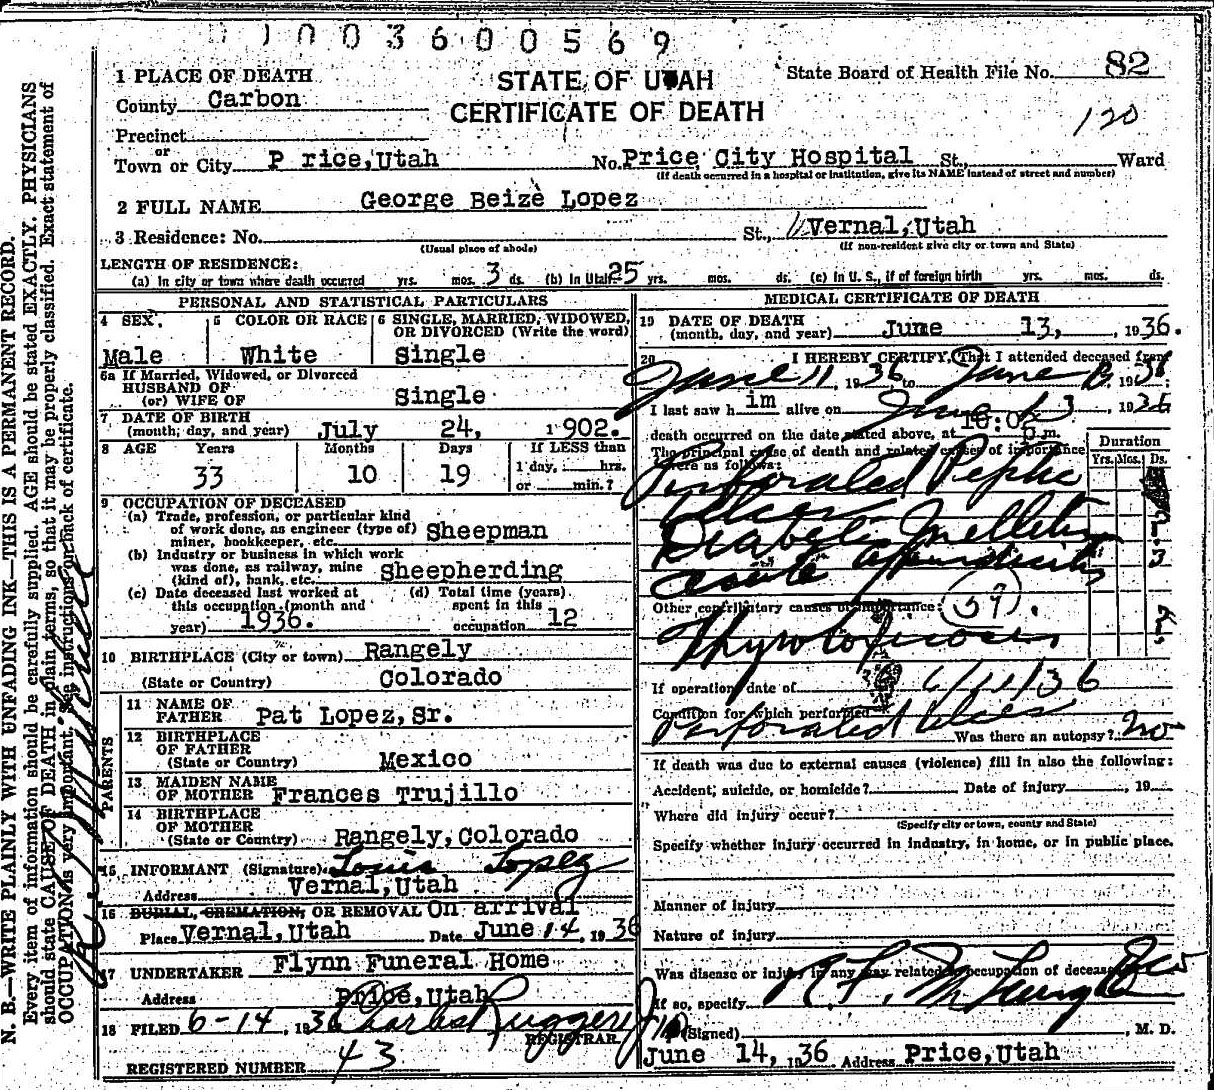 1003600569
1 PLACE OF DEATH
STATE OF UTAH
State Board of Health File No. 82
County Carbon
CERTIFICATE OF DEATH
120
Precinct
or
Town or City P rice, Utah No. Price City Hospital St., Ward
(If death occurred in a hospital or institution, give its NAME instead of street and number)
2 FULL NAME George Beize Lopez
3 Residence: No. St., Vernal, Utah
(Usual place of abode) (If non-resident give city or town and State)
LENGTH OF RESIDENCE:
(a) In city or town where death occurred yrs. mos. 3 ds. (b) In Utah 25 yrs. mos. ds. (c) In U. S., if of foreign birth yrs. mos. ds.
PERSONAL AND STATISTICAL PARTICULARS
4 SEX. 5 COLOR OR RACE 6 SINGLE, MARRIED, WIDOWED,
OR DIVORCED (Write the word)
Male White Single
6a If Married, Widowed, or Divorced
HUSBAND OF
(or) WIFE OF Single
7 DATE OF BIRTH
(month, day, and year) July 24, 1902.
8 AGE Years Months Days If LESS than
1 day, hrs.
33 10 19 or min.?
9 OCCUPATION OF DECEASED
(a) Trade, profession, or particular kind
of work done, as engineer (type of)
miner, bookkeeper, etc. Sheepman
(b) Industry or business in which work
was done, as railway, mine
(kind of), bank, etc. Sheepherding
(c) Date deceased last worked at
this occupation (month and
year) 1936.
(d) Total time (years)
spent in this
occupation 12
10 BIRTHPLACE (City or town) Rangely
(State or Country) Colorado
PARENTS
11 NAME OF
FATHER Pat Lopez, Sr.
12 BIRTHPLACE
OF FATHER
(State or Country) Mexico
13 MAIDEN NAME
OF MOTHER Frances Trujillo
14 BIRTHPLACE
OF MOTHER
(State or Country) Rangely, Colorado
15 INFORMANT (Signature) Louis Lopez
Address Vernal, Utah
16 BURIAL, CREMATION, OR REMOVAL On arrival
Place Vernal, Utah Date June 14, 1936
17 UNDERTAKER Flynn Funeral Home
Address Price, Utah
18 FILED 6-14, 1936 Charles Ruggeri Jr
REGISTRAR
REGISTERED NUMBER 43
MEDICAL CERTIFICATE OF DEATH
19 DATE OF DEATH
(month, day, and year) June 13, , 1936.
20 I HEREBY CERTIFY, That I attended deceased from
June 11, 1936 to June 13, 1936;
I last saw him alive on June 13, 1936
death occurred on the date stated above, at p m.
The principal cause of death and related causes of importance
were as follows:
Duration
Yrs. Mos. Ds.
Perforated Peptic
Ulcer
Diabetes Mellitus
acute appendicitis
Other contributory causes of importance: 59.
Thyrotoxicosis
If operation, date of 6/11/36
Condition for which performed
Perforated Ulcer
Was there an autopsy? no
If death was due to external causes (violence) fill in also the following:
Accident, suicide, or homicide? Date of injury , 19
Where did injury occur?
(Specify city or town, county and State)
Specify whether injury occurred in industry, in home, or in public place.
Manner of injury
Nature of injury
Was disease or injury in any way related to occupation of deceased
If so, specify
(Signed) , M. D.
June 14, 1936 Address Price, Utah
N. B.—WRITE PLAINLY WITH UNFADING INK—THIS IS A PERMANENT RECORD.
Every item of information should be carefully supplied. AGE should be stated EXACTLY. PHYSICIANS
should state CAUSE OF DEATH in plain terms, so that it may be properly classified. Exact statement of
OCCUPATION is very important. See instructions on back of certificate.